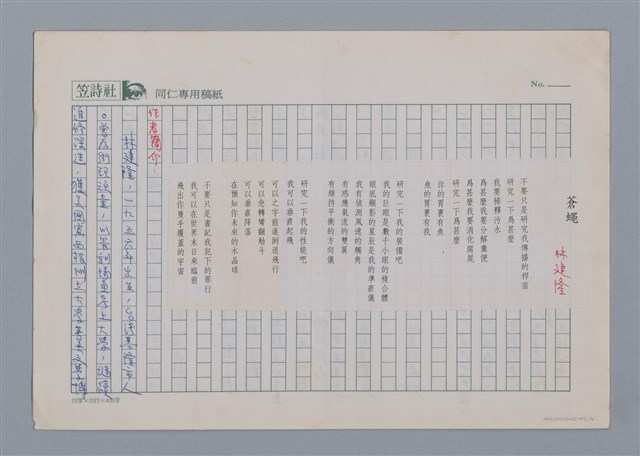 笠詩社
同仁專用稿紙
No.
蒼蠅
林建隆
不要只是研究我傳播的桿菌
研究一下爲甚麼
我要梯糞污水
爲甚麼我要分解糞便
爲甚麼我要消化腐屍
研究一下爲甚麼
你的胃裏有魚
魚的胃裏有我
研究一下我的裝備吧
我的巨眼是數千小眼的複合體
眼底顯影的星辰是我的準直儀
我有偵測風速的觸角
有感應氣流的雙翼
有維持平衡的方向儀
研究一下我的性能吧
我可以垂直起飛
可以之字前進倒退飛行
可以急轉彎翻觔斗
可以垂直降落
在預知你未來的水晶球
不要只是書記我犯下的罪行
我可以在世界末日來臨前
飛出你隻手覆蓋的宇宙
作者簡介：
林建隆，一九五六年出生，台灣基隆市人
。曾在術頭流氓，以管訓隊員考上大學，繼續
進修深造，獲美國密西根州立大學英美文學博